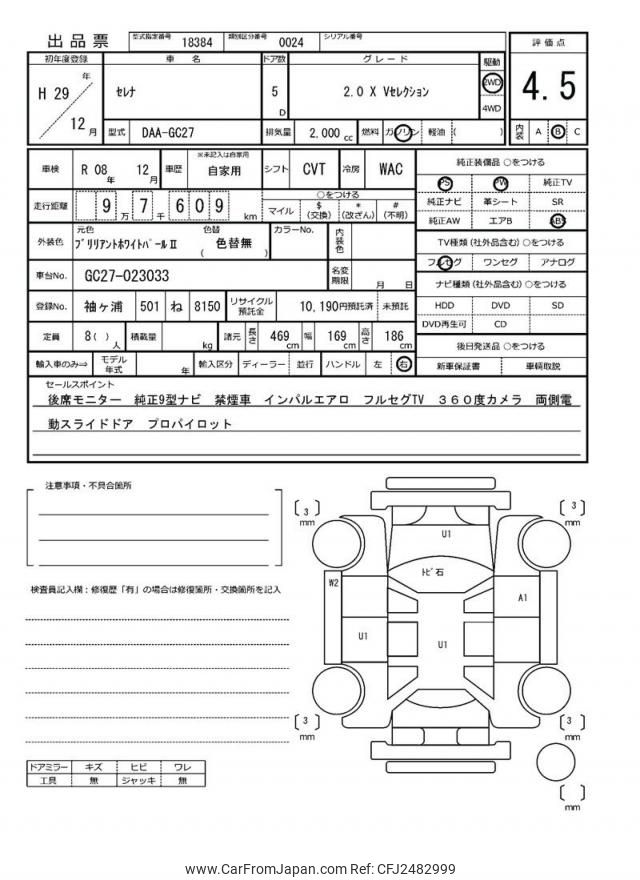 出品票 型式指定番号 18384 類別区分番号 0024 シリアル番号
初年度登録 車名 ドア数 グレード 駆動 評価点
H 29 年 12 月 セレナ 5 D 2.0 X Vセレクション 2WD 4WD 4.5
型式 DAA-GC27 排気量 2,000 cc 燃料 ガソリン 軽油 ( ) 内装 A B C
車検 R 08 年 12 月 車歴 ※未記入は自家用 自家用 シフト CVT 冷房 WAC
走行距離 9 万 7 千 6 0 9 km ○をつける マイル $ (交換) * (改ざん) # (不明)
外装色 元色 ブリリアントホワイトパールⅡ 色替 ( 色替無 ) カラーNo. 内装色
車台No. GC27-023033 名変期限 月 日
登録No. 袖ヶ浦 501 ね 8150 リサイクル預託金 10,190 円預託済 未預託
定員 8 ( ) 人 積載量 kg 諸元 長さ 469 cm 幅 169 cm 高さ 186 cm
輸入車のみ⇒ モデル年式 年 輸入区分 ディーラー 並行 ハンドル 左 右
純正装備品 ○をつける
PS PW 純正TV
純正ナビ 革シート SR
純正AW エアB ABS
TV種類 (社外品含む) ○をつける
フルセグ ワンセグ アナログ
ナビ種類 (社外品含む) ○をつける
HDD DVD SD
DVD再生可 CD
後日発送品 ○をつける
新車保証書 車輌取説
セールスポイント
後席モニター 純正9型ナビ 禁煙車 インパルエアロ フルセグTV 360度カメラ 両側電
動スライドドア プロパイロット
注意事項・不具合箇所
検査員記入欄：修復歴「有」の場合は修復箇所・交換箇所を記入
ドアミラー キズ ヒビ ワレ
工具 無 ジャッキ 無
[ 3 ] mm
[ 3 ] mm
U1
トビ石
W2
A1
U1
U1
[ 3 ] mm
[ 3 ] mm
[ ] mm
www.CarFromJapan.com Ref: CFJ2482999